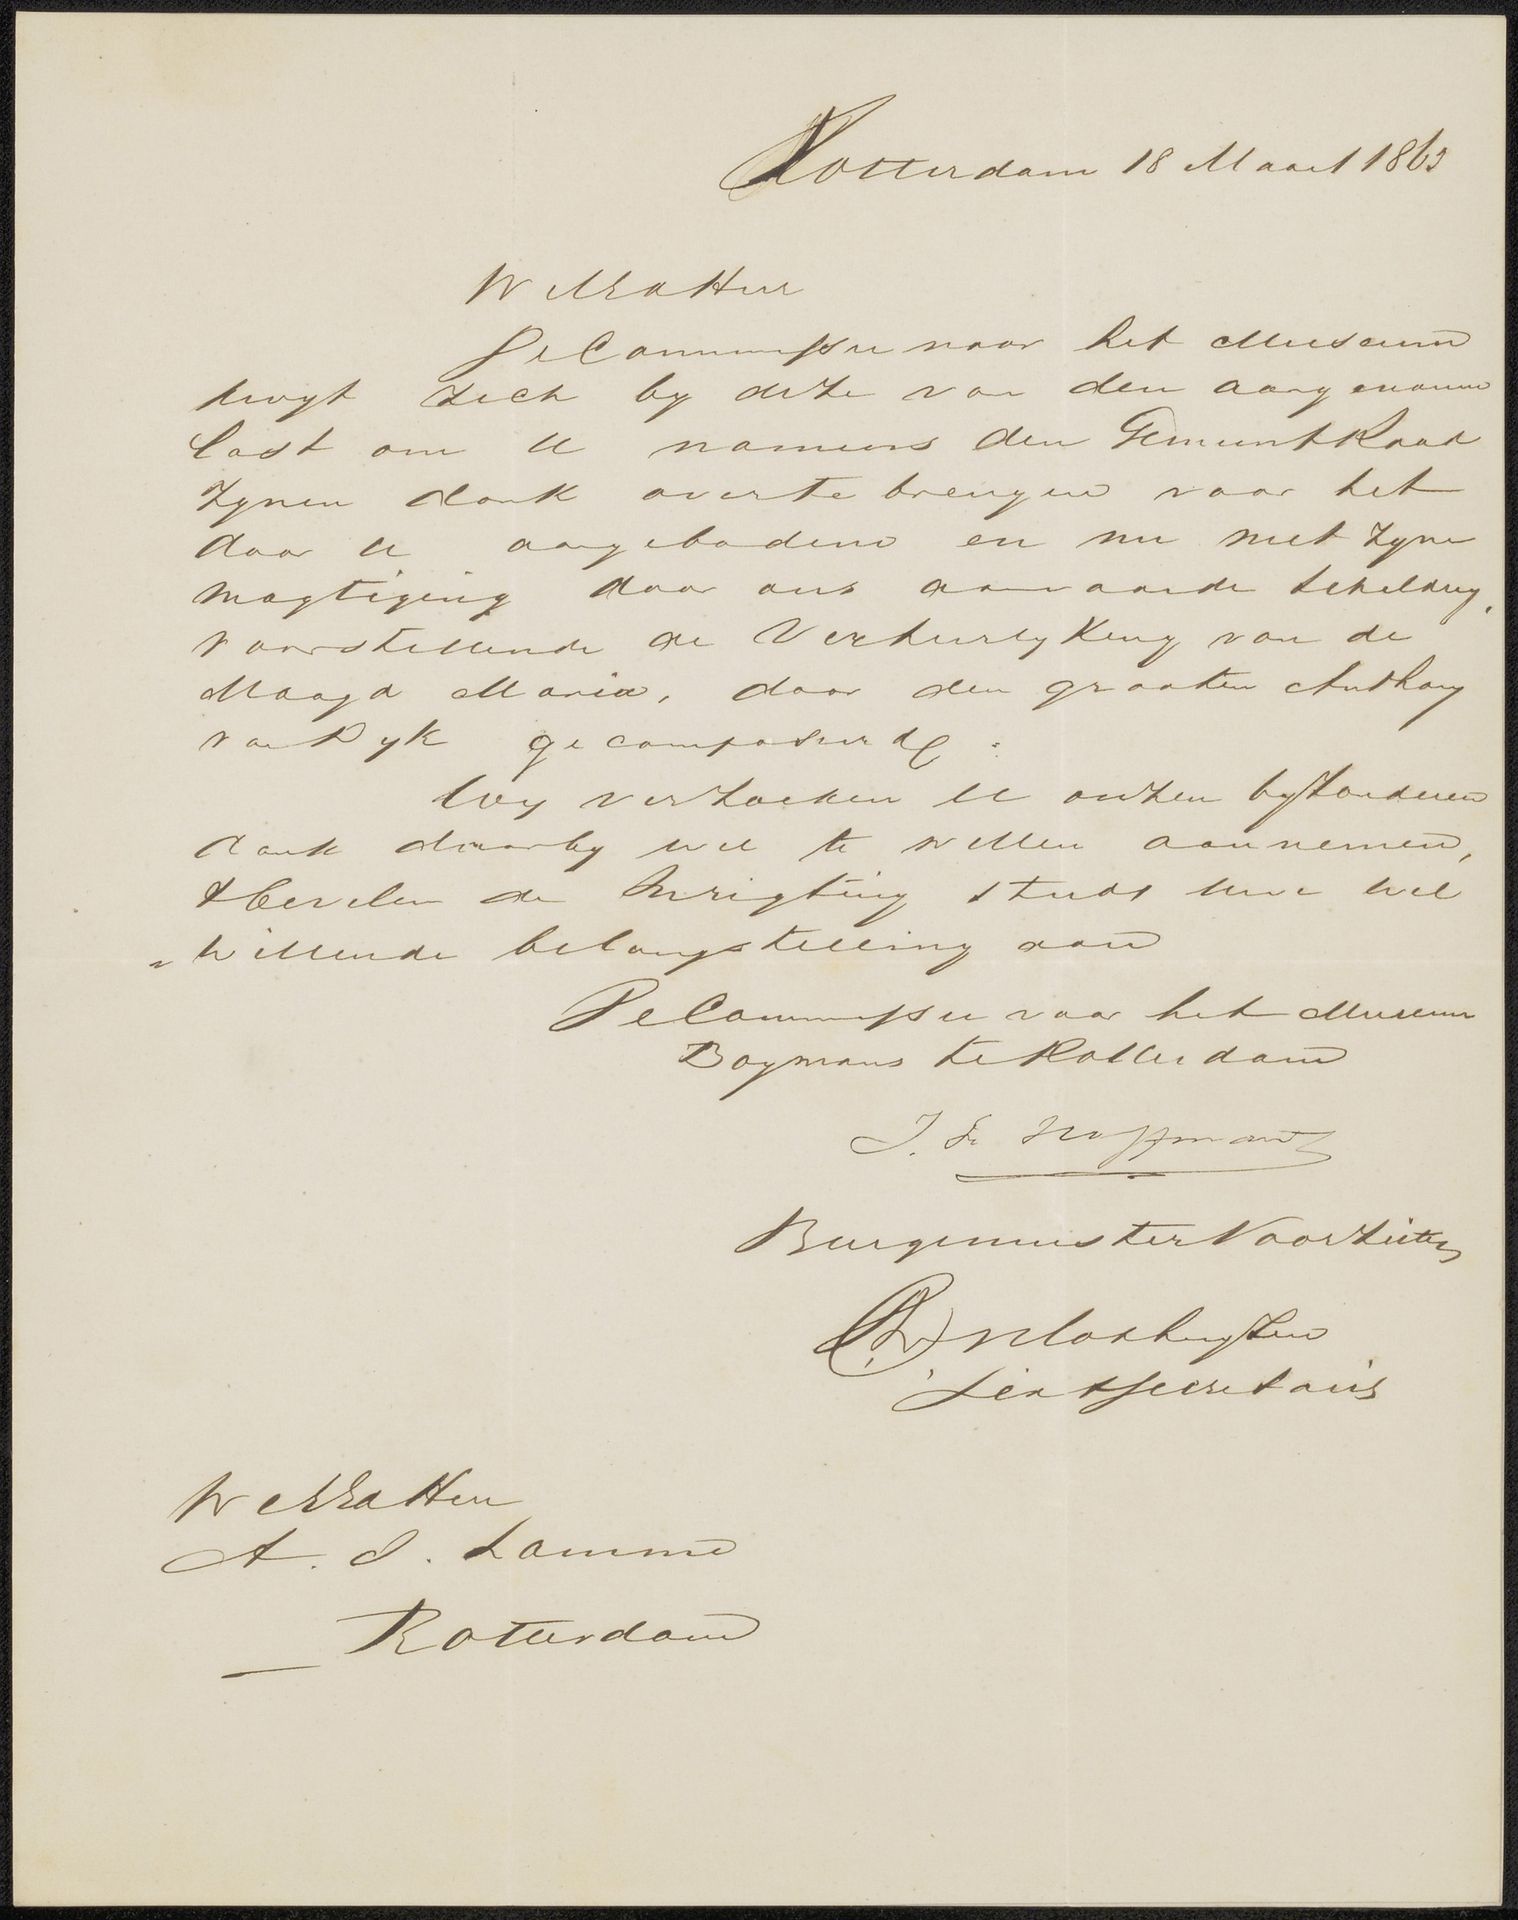 Rotterdam 18 Maart 1863
WelEd Heer
De Commissie voor het Museum
kwyt zich by deze van den aangenamen
last om U namens den GemeentRaad
zynen dank overtebrengen voor het
door U aangebodene en nu met zyne
magtiging door ons aanvaarde schildery,
voorstellende de Verheerlyking van de
Maagd Maria, door den grooten Anthony
van Dyk gecomposeerd.
Wy verzoeken U onzen byzonderen
dank daarby wel te willen aannemen,
& bevelen de Inrigting steeds Uwe wel
„willende belangstelling aan
De Commissie voor het Museum
Boymans te Rotterdam
J. F. Hoffman
Burgemeester Voorzitter
Vloshuyzen
Secretaris
WelEd Heer
A. J. Lamme
Rotterdam